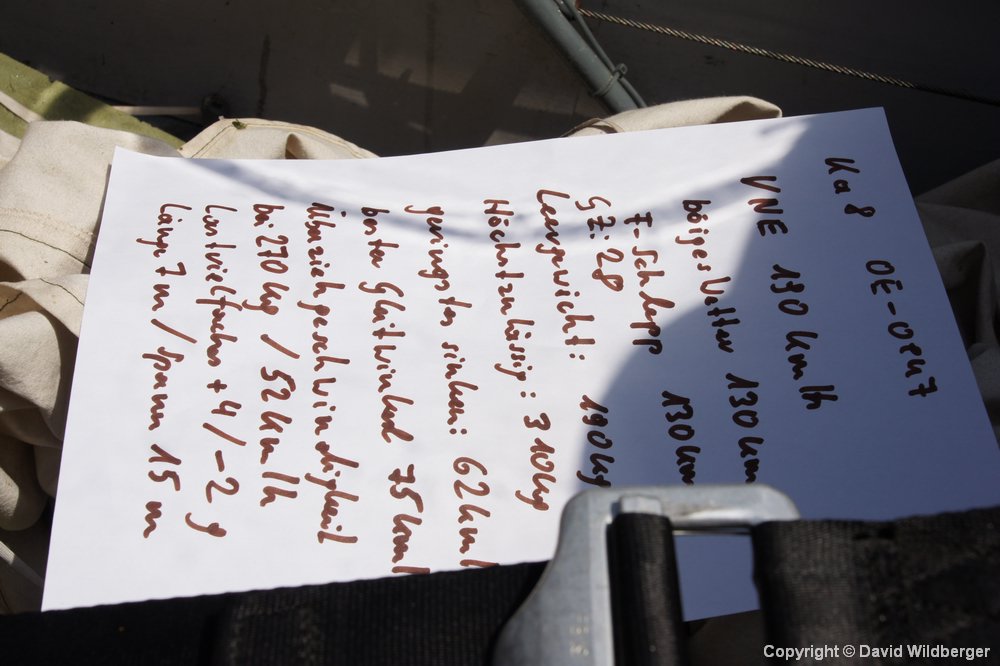 Ka 8
VNE 190 km/h
böiges Wetter 130km
F-Schlepp 130km
28
Leergewicht: 190kg
Höchstzulässig: 310kg
geringstes sinken: 62km/
bester Gleitwinkel 75km/
Überziehgeschwindigkeit
bei 270kg / 52km/h
Lastvielfaches +4/-2 g
Länge 7m / Spann 15 m
Copyright © David Wildberger